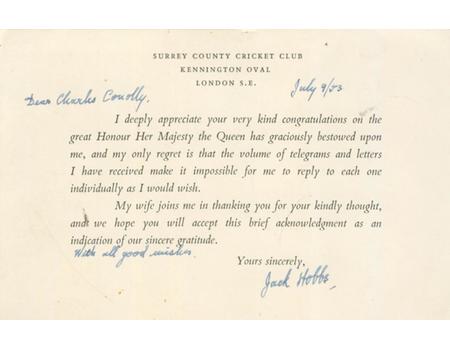 SURREY COUNTY CRICKET CLUB
KENNINGTON OVAL
LONDON S.E.
July 9/53
Dear Charles Conolly.
I deeply appreciate your very kind congratulations on the
great Honour Her Majesty the Queen has graciously bestowed upon
me, and my only regret is that the volume of telegrams and letters
I have received make it impossible for me to reply to each one
individually as I would wish.
My wife joins me in thanking you for your kindly thought,
and we hope you will accept this brief acknowledgment as an
indication of our sincere gratitude.
With all good wishes.
Yours sincerely,
Jack Hobbs,